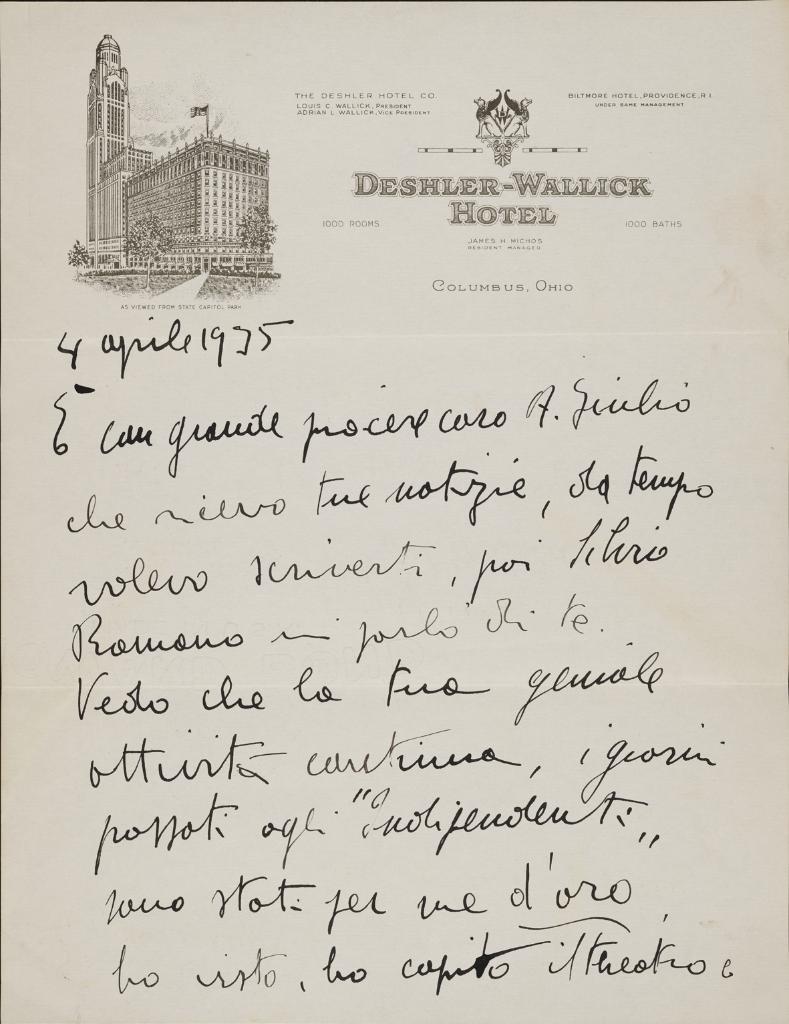 THE DESHLER HOTEL CO.
LOUIS C. WALLICK, PRESIDENT
ADRIAN L. WALLICK, VICE PRESIDENT
BILTMORE HOTEL, PROVIDENCE, R.I.
UNDER SAME MANAGEMENT
DESHLER-WALLICK
HOTEL
1000 ROOMS
1000 BATHS
JAMES H. MICHOS
RESIDENT MANAGER
COLUMBUS, OHIO
AS VIEWED FROM STATE CAPITOL PARK
4 aprile 1935
È con grande piacere caro A. Giulio
che ricevo tue notizie, da tempo
volevo scriverti, poi Silvio
Romano mi parlò di te.
Vedo che la tua geniale
attività continua, i giorni
passati agli "Indipendenti"
sono stati per me d'oro,
ho visto, ho capito il theatro e